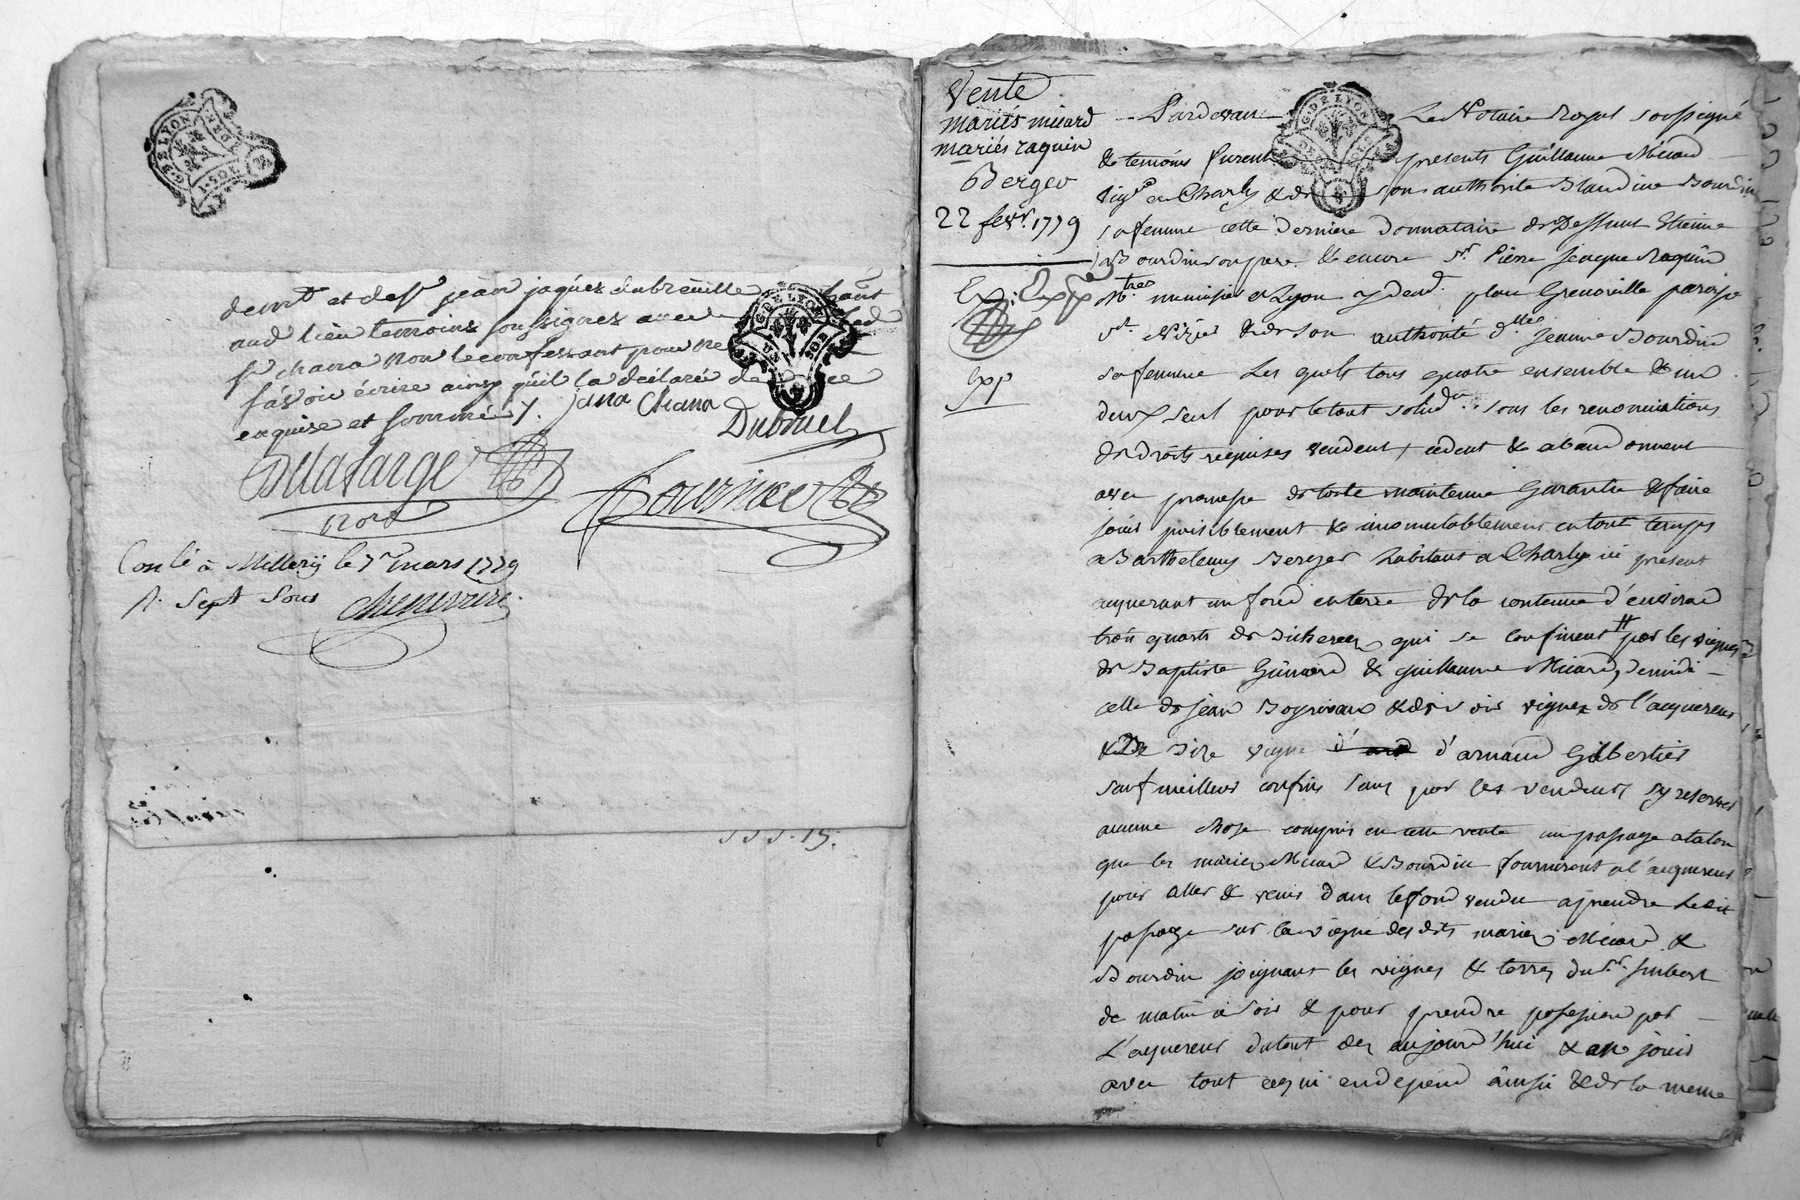 G. DE LYON
demt et de sr jean jaques dubreüille
aud lieu temoins soussignes avec
sr chana non le confessant pour ne
sçavoir écrire ainsy qu'il la déclaré de ce
enquise et sommé /. jana Chana
Dubruel
Delafarge
nore
Fournier
G. DE LYON
Conlé à Millery le 7 mars 1779
R. Sept Sous
chenevière
555.15.
Vente
mariés micard
mariés raquin
Berger
22 fevr. 1779
Exp.
Exp
Pardevant Le Notaire Royal soussigné
G. DE LYON
& temoins furent presents Guillaume Micard
vign en Charly & de son authorité Blandine Bourdin
sa femme cette derniere donnataire de Deffunt Etienne
Bourdin son pere & encore Sr. Pierre Jacque Raquin
Mtre menuisier a Lyon y demt. place Grenouille paroisse
St. Nizier & de son authorité dlle Jeanne Bourdin
sa femme Les quels tous quatre ensemble & un
deux seul pour le tout solidre. sous les renonciations
de droits requises vendent, cedent & abandonnent
avec promesse de toute maintenue Garantie & faire
jouir paisiblement & incomutablement en tout temps
a Barthelemy Berger habitant a Charly ici présent
acquerant un fond en terre de la contenue d'environ
trois quarts de bicheree, qui se confinent # par les vignes
de Baptiste Guinand & guillaume Micard, de midi
celle de jean Boyrivant & de soir vignes de l'acquereur
& De bize vigne d'arnaud Gilbertier
sauf meilleurs confins sans par les vendeurs s'y reserver
aucune chose compris en cette vente un passage a talon
que les mariés Micard & Bourdin fourniront a l'acquereur
pour aller & venir dans le fond vendu a prendre ledit
passage sur la vigne des dits mariés Micard &
Bourdin joignant les vignes & terres du Sr. Imbert
de matin à soir & pour prendre possession par
L'acquereur du tout des aujourd'hui & en jouir
avec tout ce qui en depend ainsi & de la meme